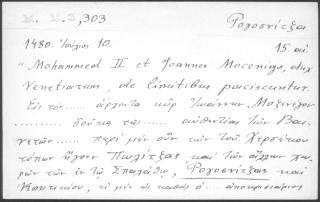 M. M. 3, 303 Ρογοσνίτζαι
1480. Ἰούλιος 10. 15 αἰ.
"Mohammed II et Joannes Mocenigo, dux
Venetiarum, de limitibus paciscuntur.
Εἰς τὸν ...... ἄρχοντα κὺρ Ἰωάννην Μοζενίγον
......... δοῦκα τῆς ..... αὐθεντίας τῶν Βε-
νετῶν ...... περὶ μὲν οὖν τῶν τοῦ Χερσέκου
τόπων ἤγουν Πωλίτζας καὶ τῶν ἄλλων χω-
ρῶν τῶν ἐν τῷ Σπαλάθῳ, Ρογοσνίτζας καὶ
καὶ ὁ ..... ἀποκρισιάριος